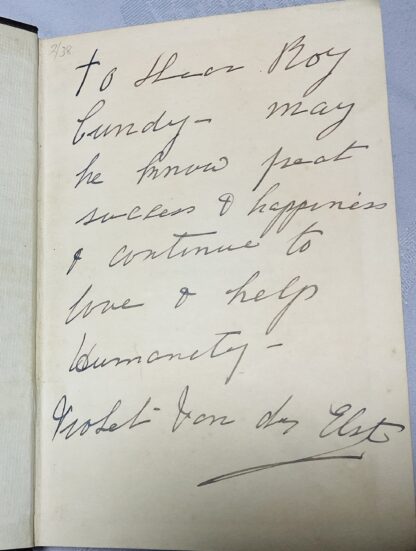 2/38
To Dear Roy
Cundy - may
he know great
success & happiness
& continue to
love & help
Humanity -
Violet Van der Elst